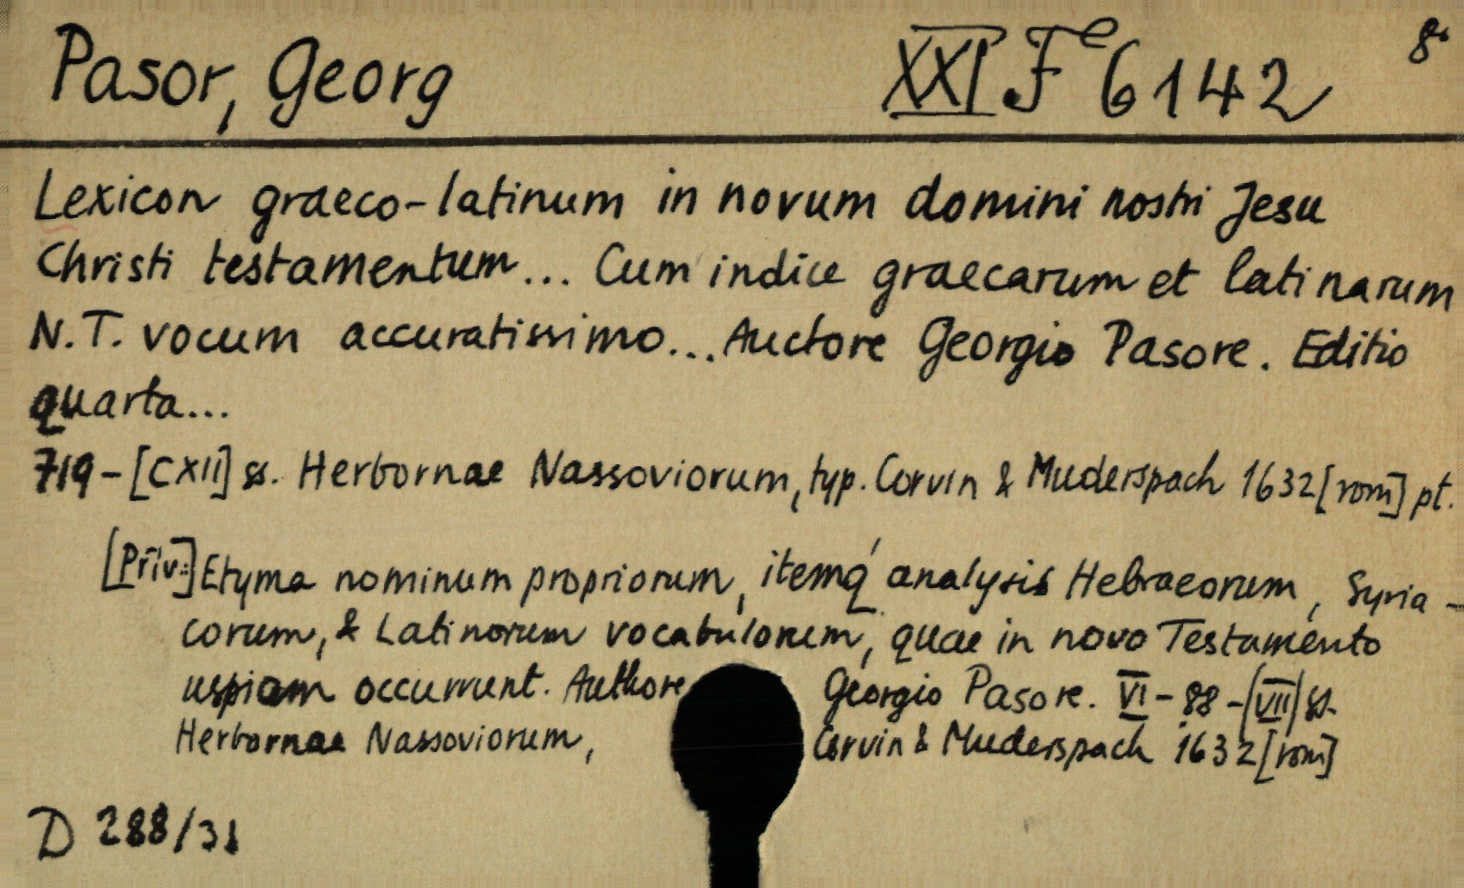 Pasor, Georg XXI Fe 6142 8°
Lexicon graeco-latinum in novum domini nostri Jesu
Christi testamentum... Cum indice graecarum et latinarum
N.T. vocum accuratissimo... Auctore Georgio Pasore. Editio
quarta...
719-[CXII] ss. Herbornae Nassoviorum, typ. Corvin & Muderspach 1632 [rom] pt.
[Přív.:] Etyma nominum propriorum, itemq' analysis Hebraeorum, Syria-
corum, & Latinorum vocabulorum, quae in novo Testamento
uspiam occurrunt. Authore Georgio Pasore. VI-88-[VII] ss.
Herbornae Nassoviorum, Corvin & Muderspach 1632 [rom]
D 288/31